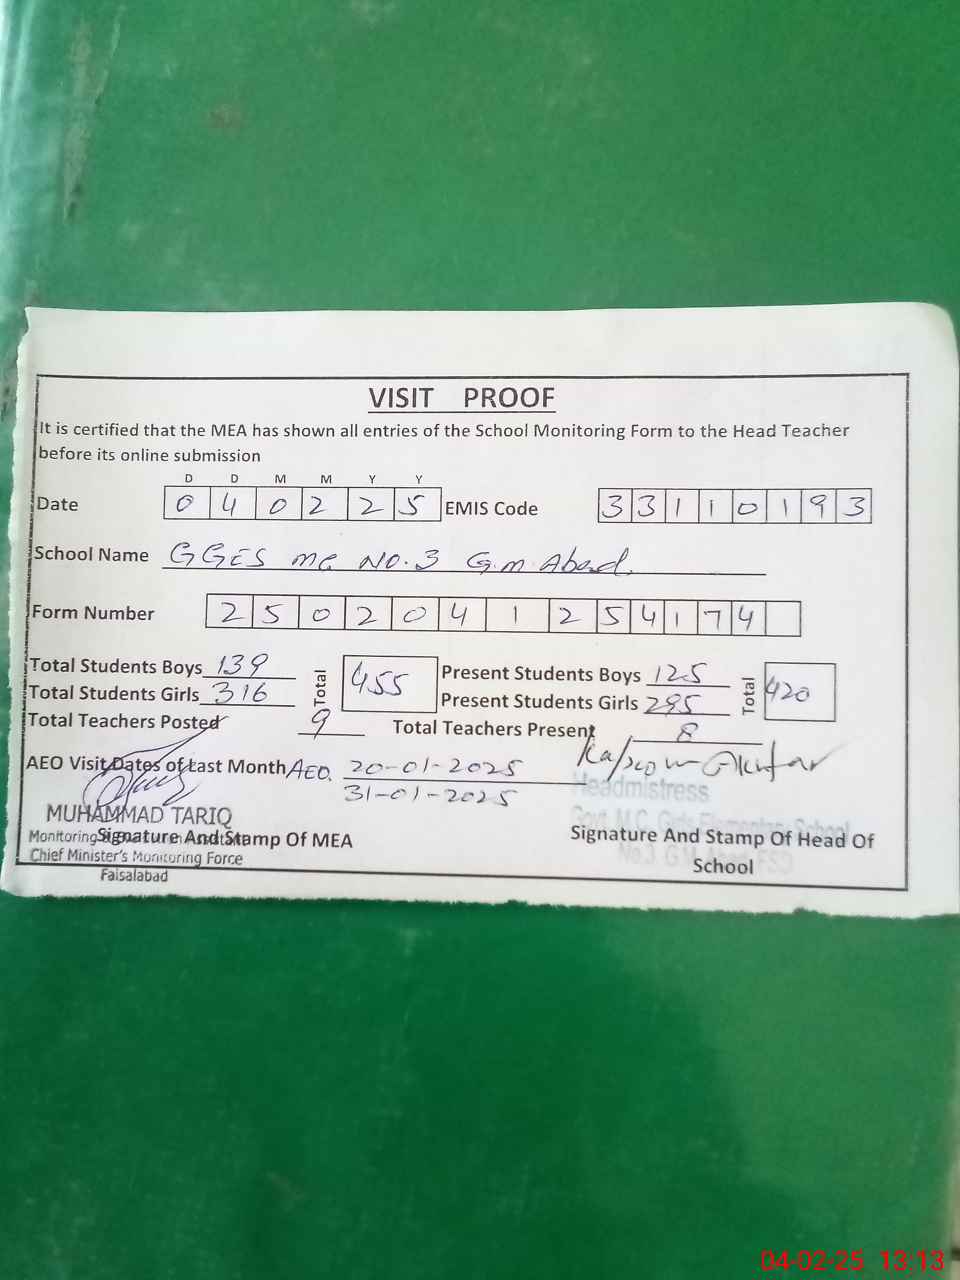 VISIT PROOF
It is certified that the MEA has shown all entries of the School Monitoring Form to the Head Teacher
before its online submission
D D M M Y Y
Date 0 4 0 2 2 5 EMIS Code 3 3 1 1 0 1 9 3
School Name GGES MC NO.3 G.M.Abad.
Form Number 2 5 0 2 0 4 1 2 5 4 1 7 4
Total Students Boys 139 Total 455 Present Students Boys 125 Total 420
Total Students Girls 316 Present Students Girls 295
Total Teachers Posted 9 Total Teachers Present 8
AEO Visit Dates of Last Month AEO. 20-01-2025
31-01-2025
Headmistress
MUHAMMAD TARIQ
Govt. M.C. Girls Elementary School
Signature And Stamp Of MEA Signature And Stamp Of Head Of
School
Monitoring
Chief Minister's Monitoring Force
No.3 G.M.Abad FSD
Faisalabad
04-02-25 13:13